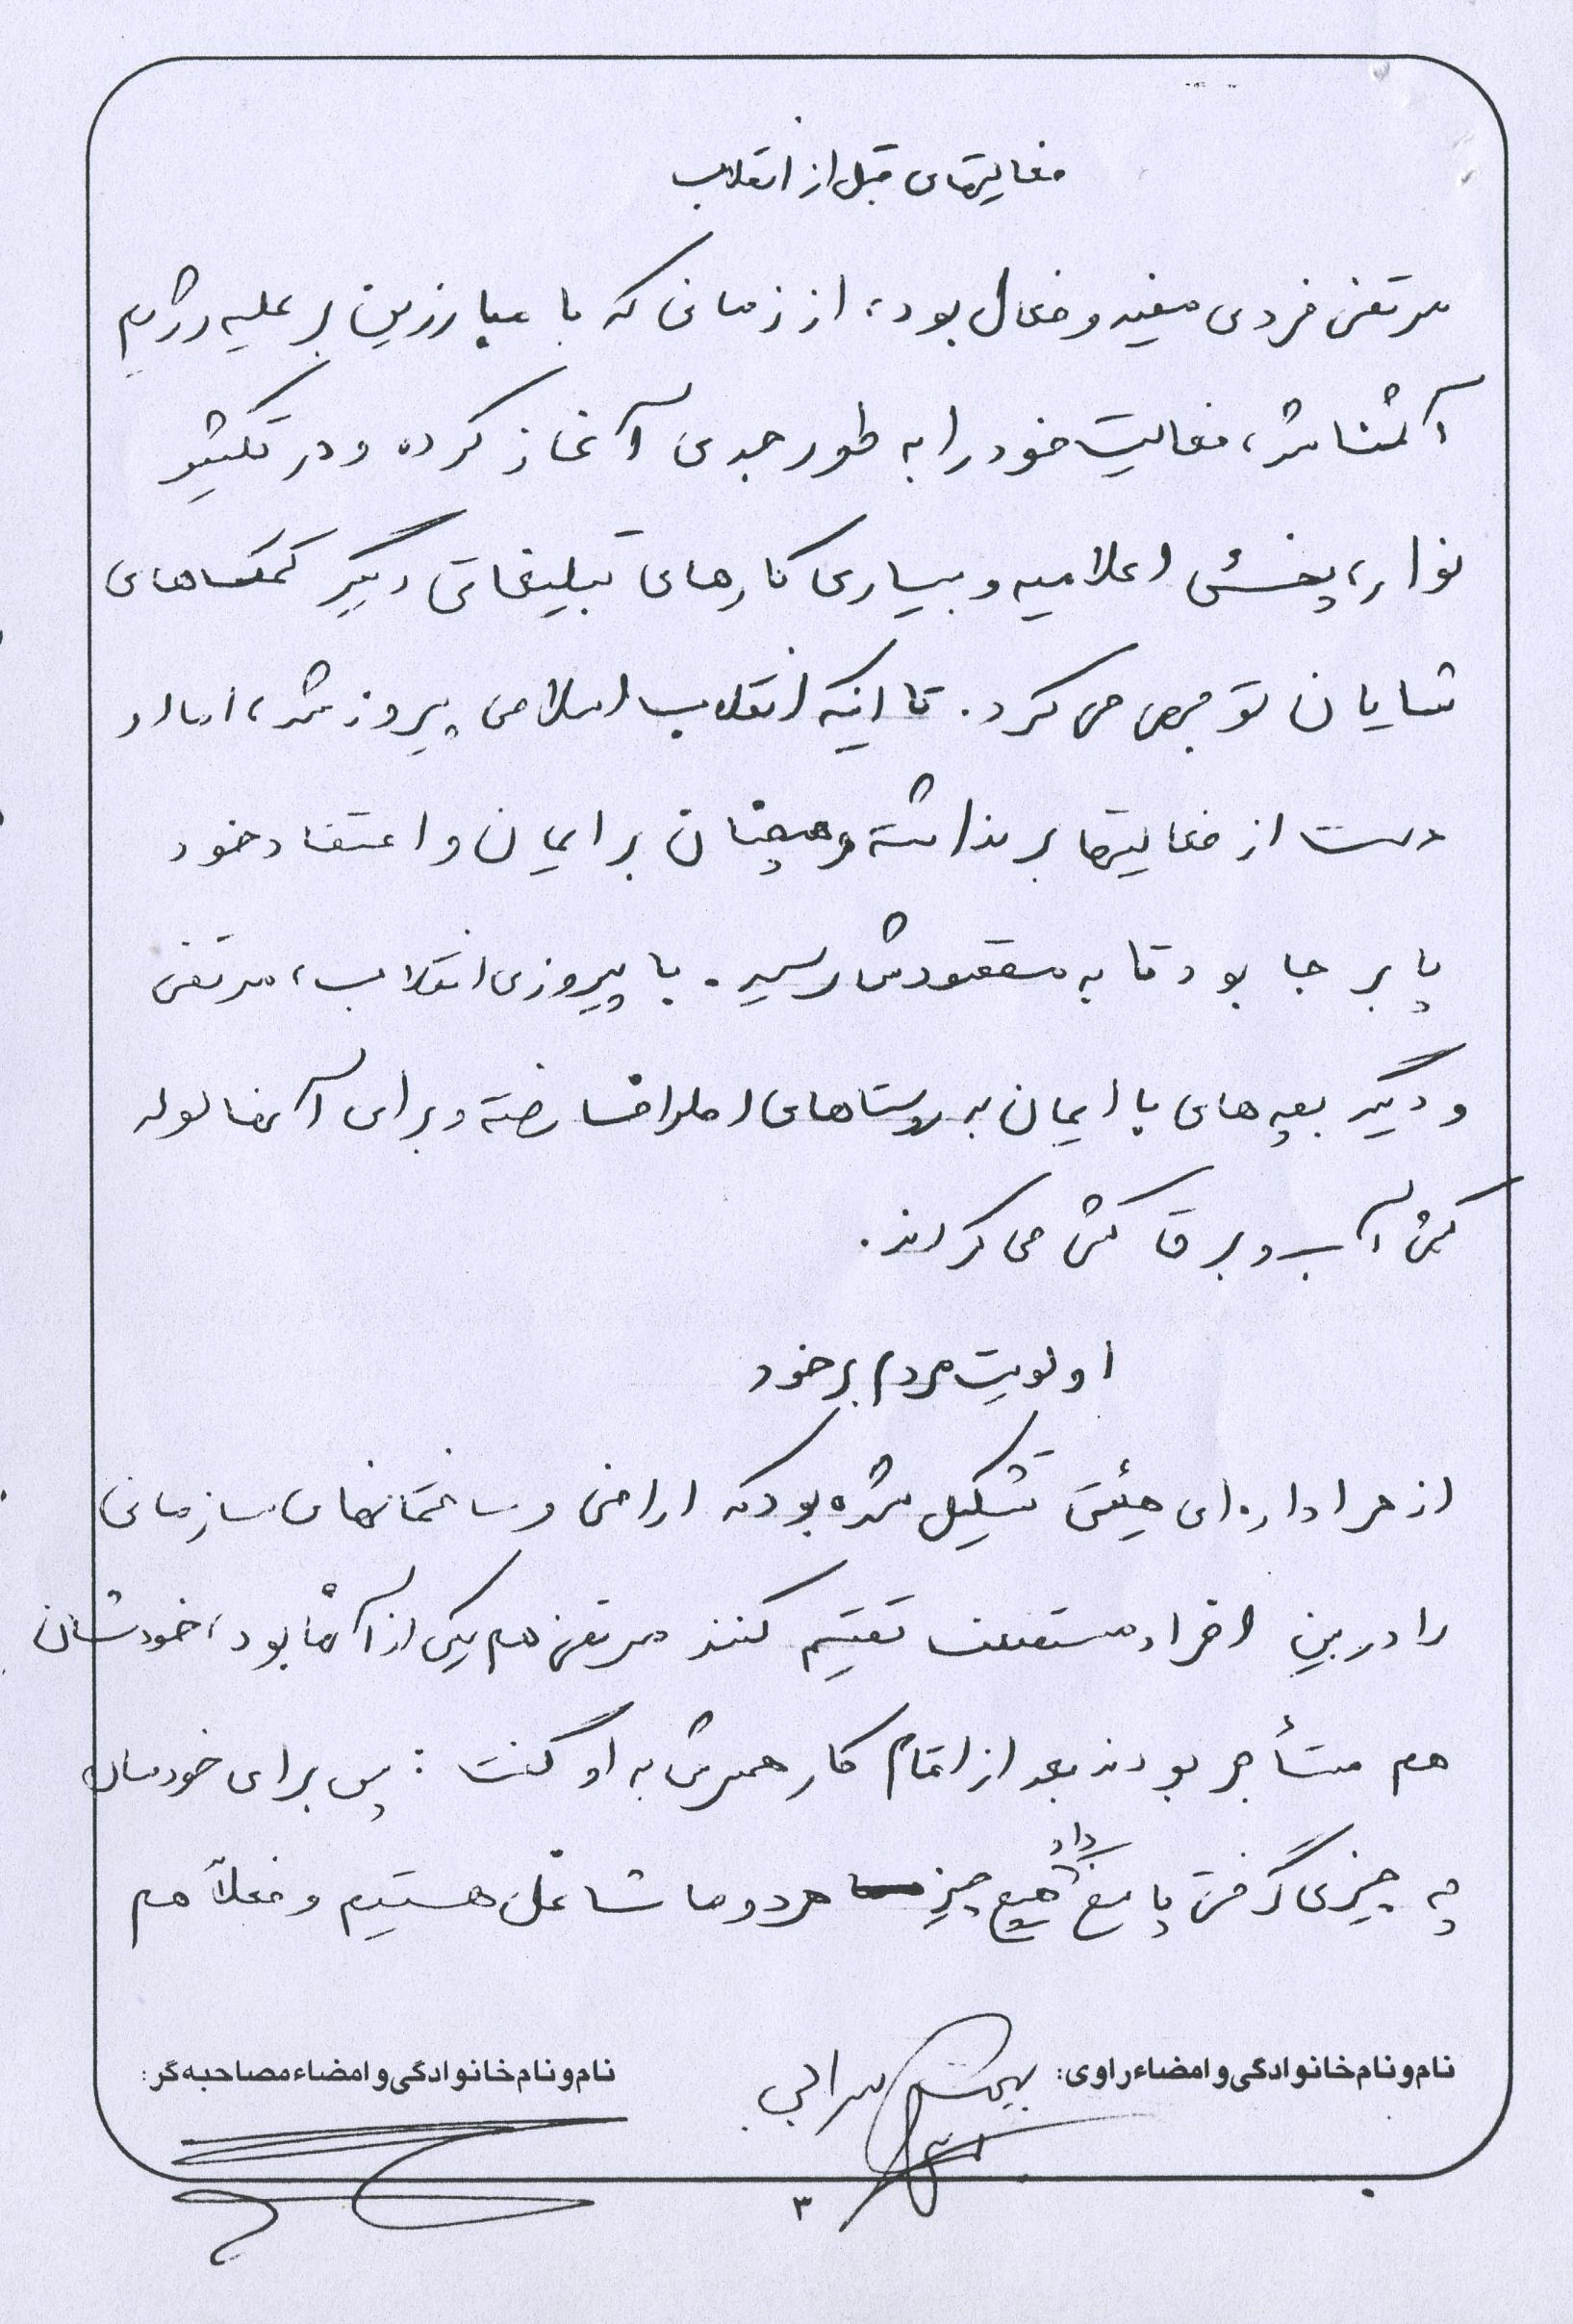 فعالیتهای قبل از انقلاب
مرتضی فردی مفید و فعال بود، از زمانی که با مبارزین بر علیه رژیم
آشنا شد، فعالیت خود را به طور جدی آغاز کرده و در تکثیر
نوار، پخش اعلامیه و بسیاری کارهای تبلیغاتی دیگر کمکهای
شایان توجهی می کرد. تا اینکه انقلاب اسلامی پیروز شد، اما او
دست از فعالیتها بر نداشته و همچنان بر ایمان و اعتقاد خود
پا بر جا بود تا به مقصودش رسید. با پیروزی انقلاب، مرتضی
و دیگر بچه های با ایمان به روستاهای اطراف رفته و برای آنها لوله
کشی آب و برق کشی می کردند.
اولویت مردم بر خود
از هر اداره ای هیئتی تشکیل شده بود که اراضی و ساختمانهای سازمانی
را در بین افراد مستضعف تقسیم کنند مرتضی هم یکی از آنها بود، خودشان
هم مستأجر بودند بعد از اتمام کار همسرش به او گفت: پس برای خودمان
چه چیزی گرفتی پاسخ داد هیچ چیز هر دو ما شاغل هستیم و فعلاً هم
نام و نام خانوادگی و امضاء راوی:
نام و نام خانوادگی و امضاء مصاحبه گر:
۳